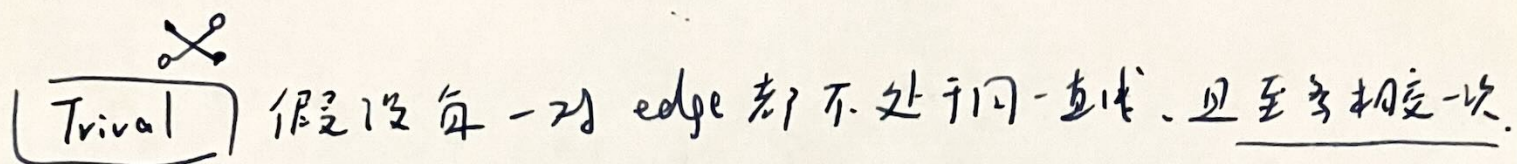 Trival 假设每一对 edge 都不处于同一直线、且至多相交一次.